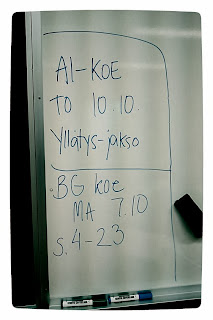 AI-KOE
TO 10.10.
Yllätys-jakso
BG koe
MA 7.10
s. 4-23